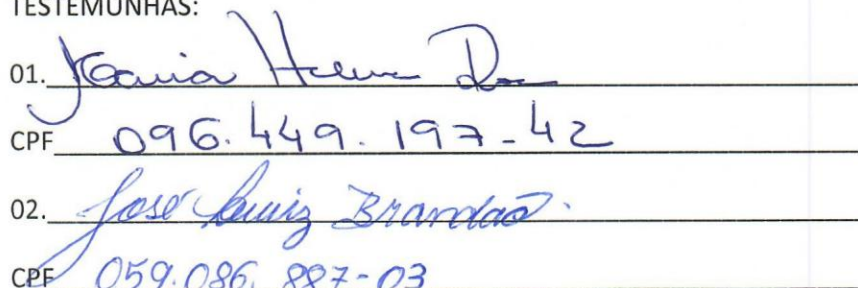 TESTEMUNHAS:
01. Helena
CPF 096.449.197-42
02. José Luiz Brandão.
CPF 059.086.887-03